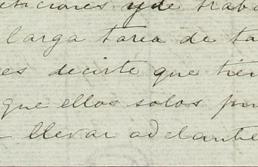 y de traba
larga tarea de ta
es decirte que tie
que ellos solos pu
llevar adelante